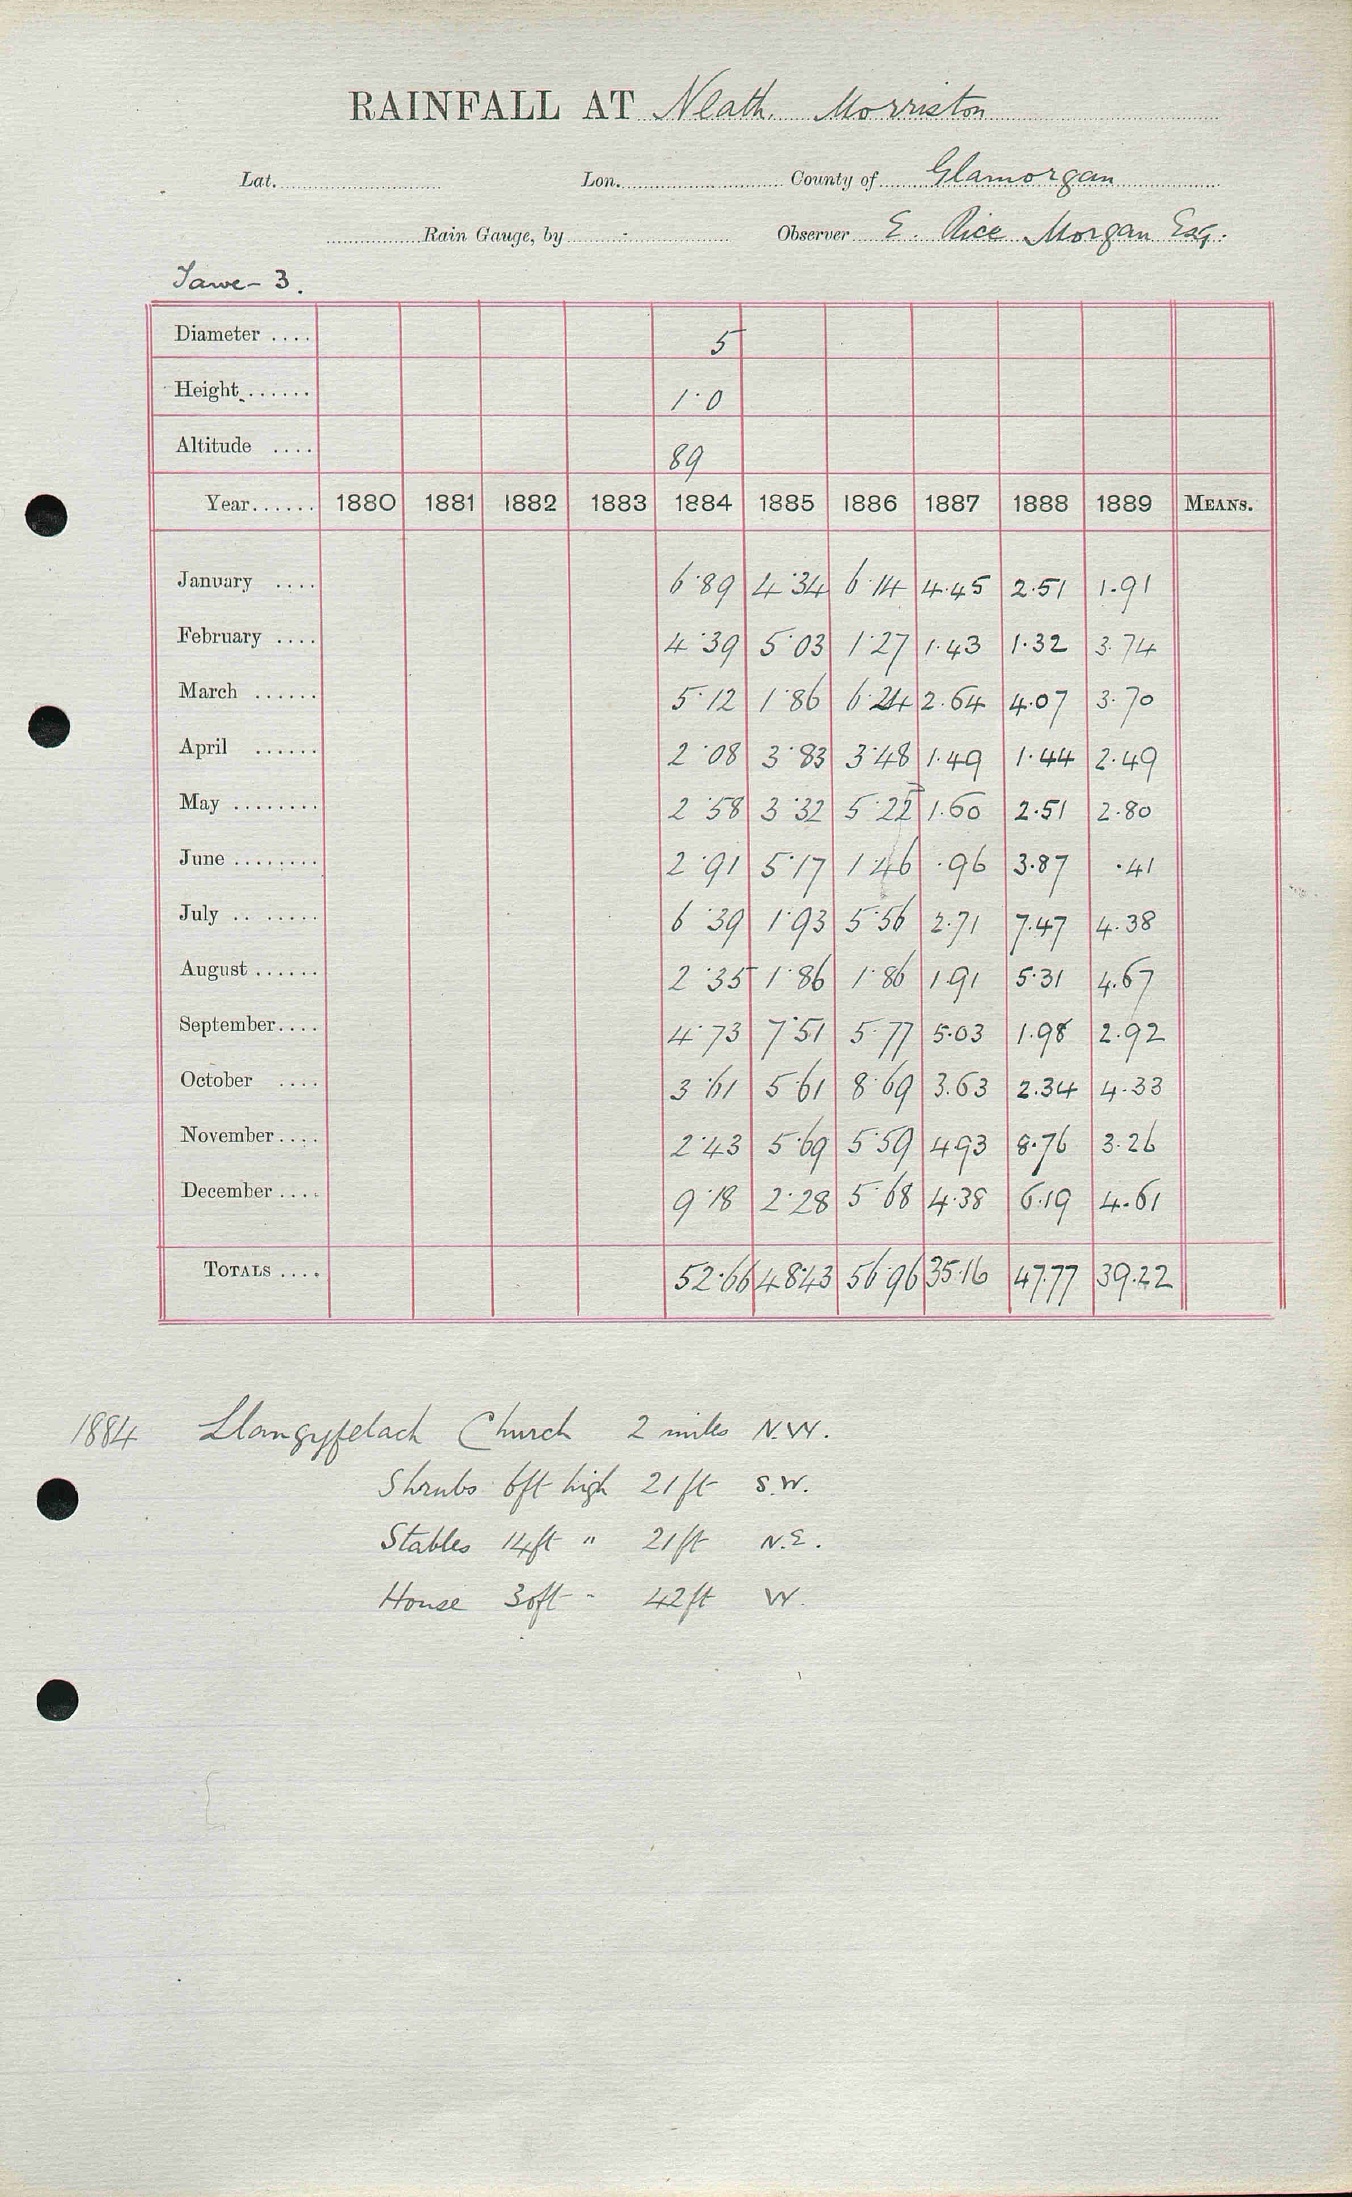 RAINFALL AT Neath. Morriston
Lat. Lon. County of Glamorgan
Rain Gauge, by Observer E. Rice Morgan Esq.
Tawe- 3.
Diameter .... 5
Height...... 1.0
Altitude .... 89
Year...... 1880 1881 1882 1883 1884 1885 1886 1887 1888 1889 MEANS.
January .... 6.89 4.34 6.14 4.45 2.51 1.91
February .... 4.39 5.03 1.27 1.43 1.32 3.74
March ...... 5.12 1.86 6.24 2.64 4.07 3.70
April ...... 2.08 3.83 3.48 1.49 1.44 2.49
May ........ 2.58 3.32 5.22 1.60 2.51 2.80
June ........ 2.91 5.17 1.46 .96 3.87 .41
July .. ..... 6.39 1.93 5.56 2.71 7.47 4.38
August ...... 2.35 1.86 1.86 1.91 5.31 4.67
September.... 4.73 7.51 5.77 5.03 1.98 2.92
October .... 3.61 5.61 8.69 3.63 2.34 4.33
November.... 2.43 5.69 5.59 4.93 8.76 3.26
December .... 9.18 2.28 5.68 4.38 6.19 4.61
TOTALS .... 52.66 48.43 56.96 35.16 47.77 39.22
1884 Llangyfelach Church 2 miles N.W.
Shrubs 6ft high 21ft S.W.
Stables 14ft " 21ft N.E.
House 30ft " 42ft W.